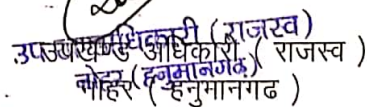 उपखण्ड अधिकारी (राजस्व)
उपखण्ड अधिकारी ( राजस्व )
नोहर (हनुमानगढ़)
नोहर ( हनुमानगढ )